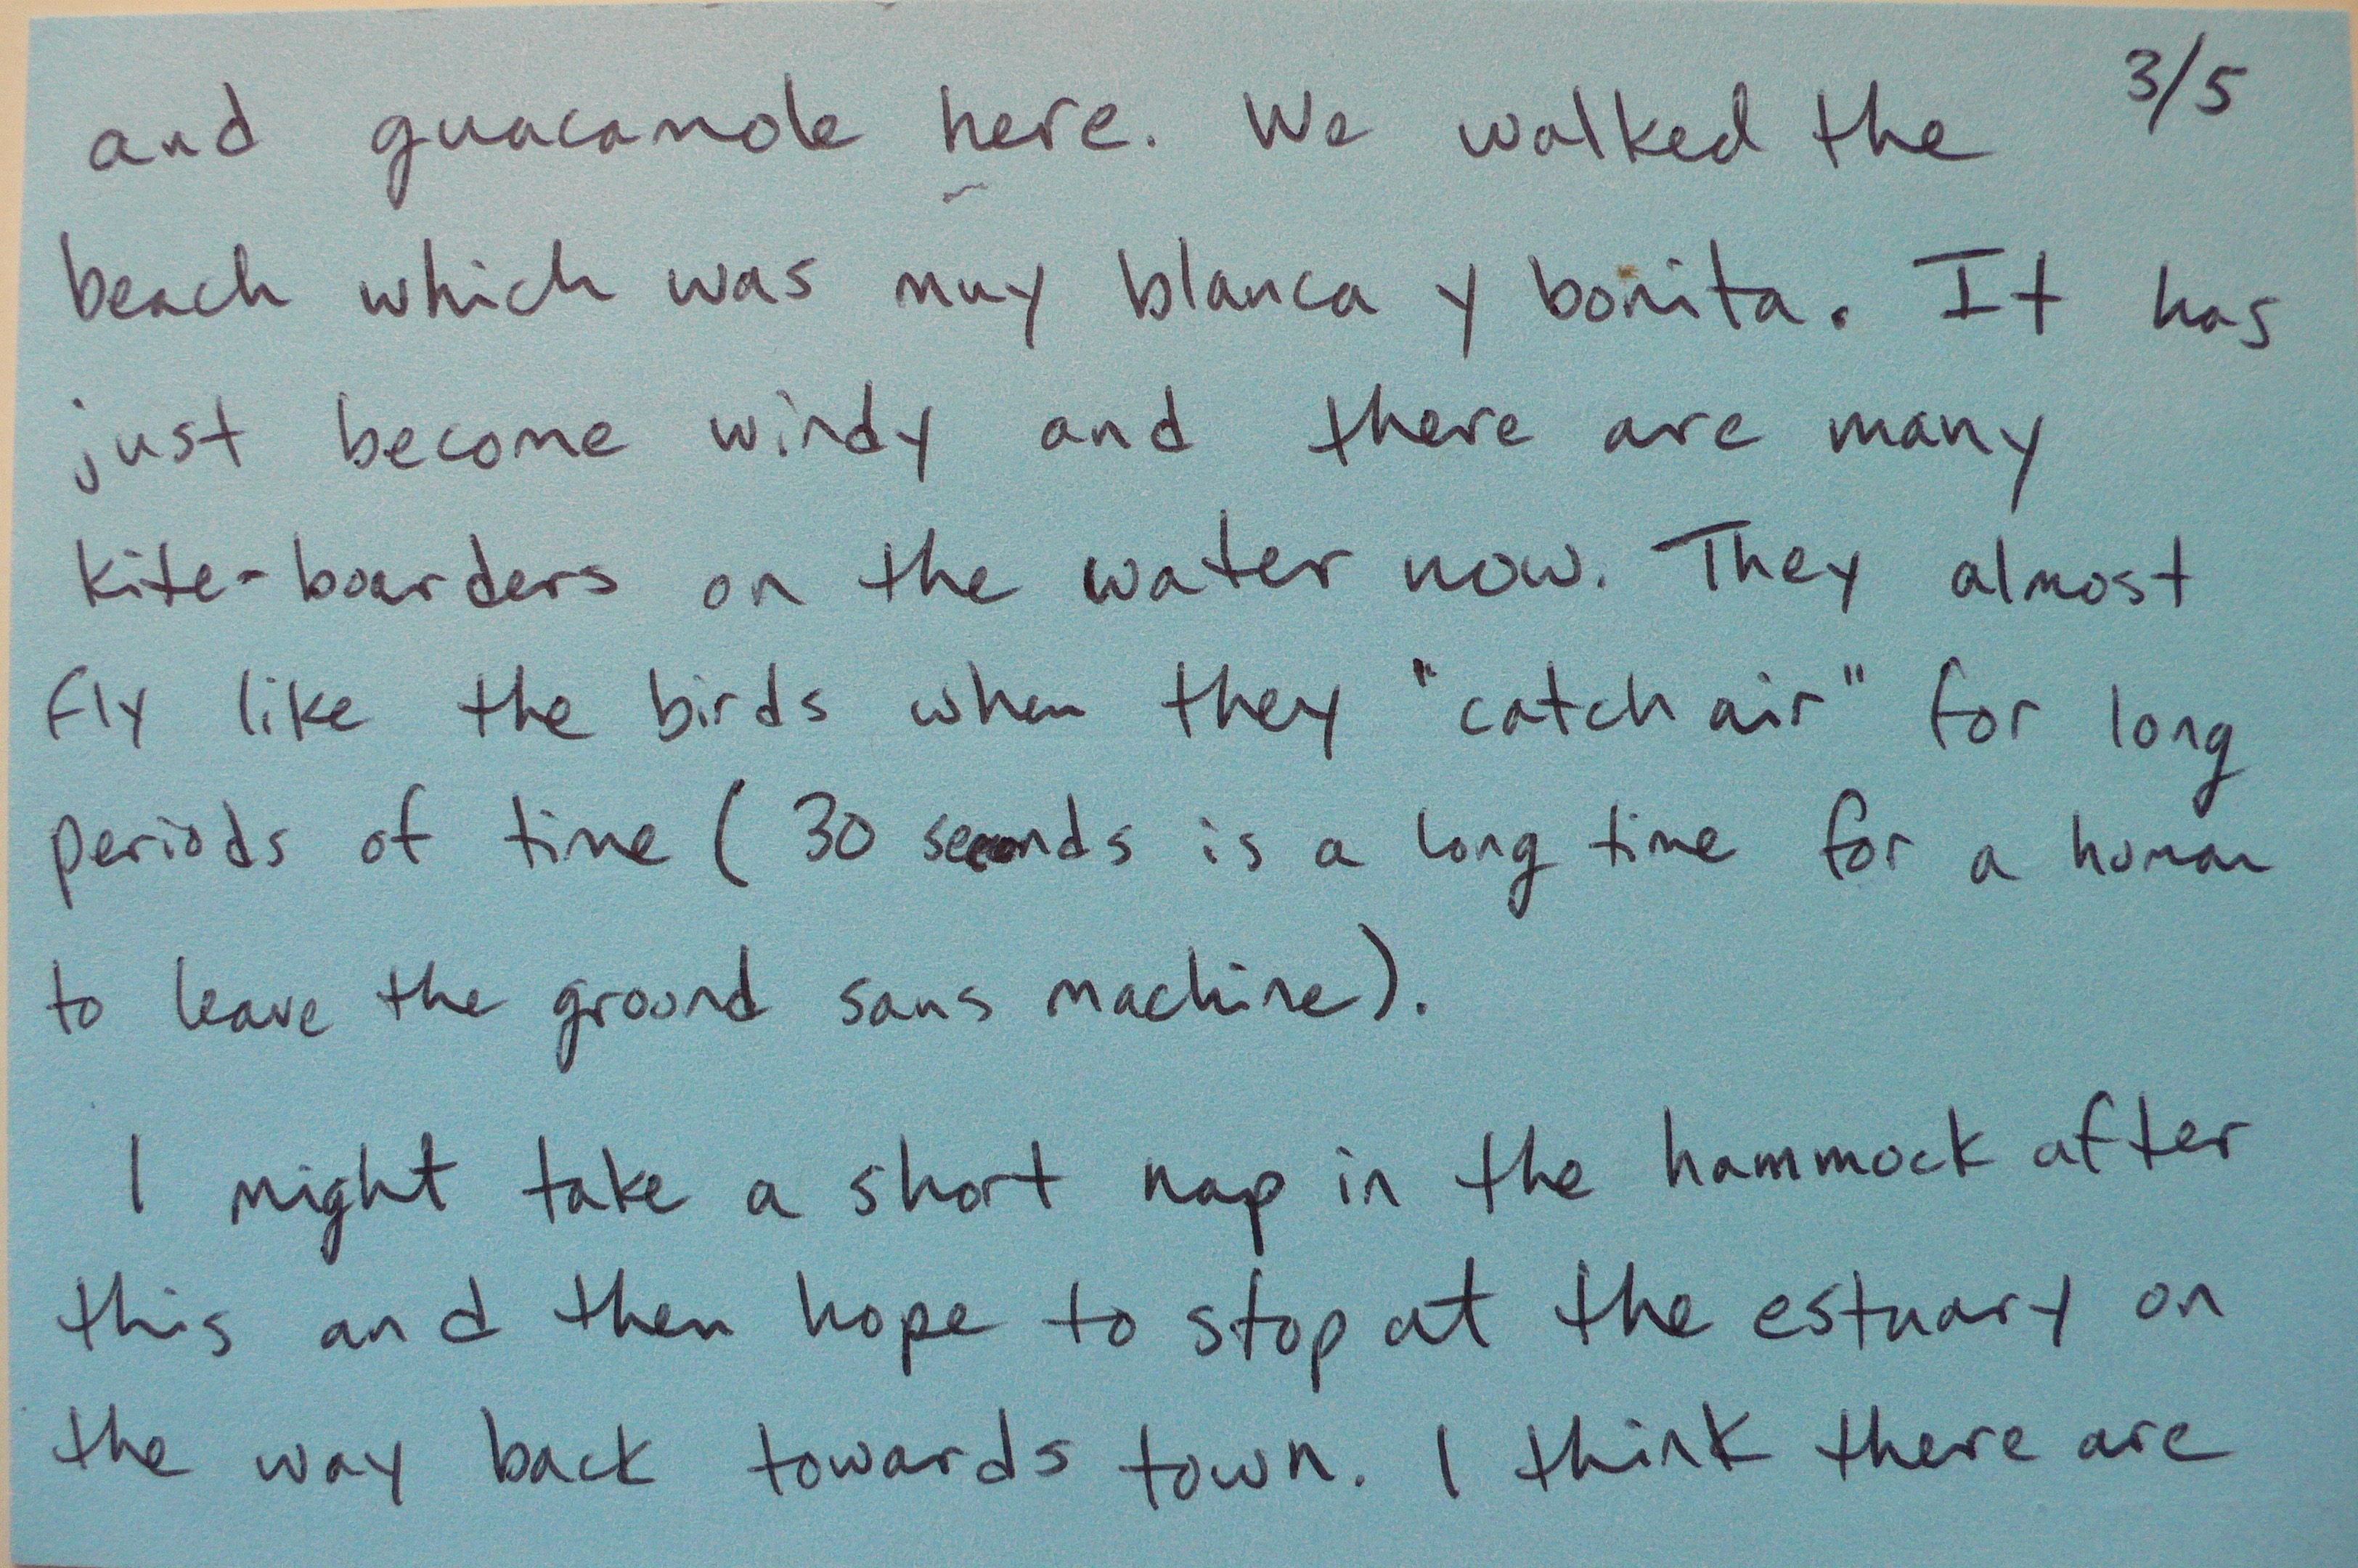 3/5
and guacamole here. We walked the
beach which was muy blanca y bonita. It has
just become windy and there are many
kite-boarders on the water now. They almost
fly like the birds when they "catch air" for long
periods of time ( 30 seconds is a long time for a human
to leave the ground sans machine).
I might take a short nap in the hammock after
this and then hope to stop at the estuary on
the way back towards town. I think there are